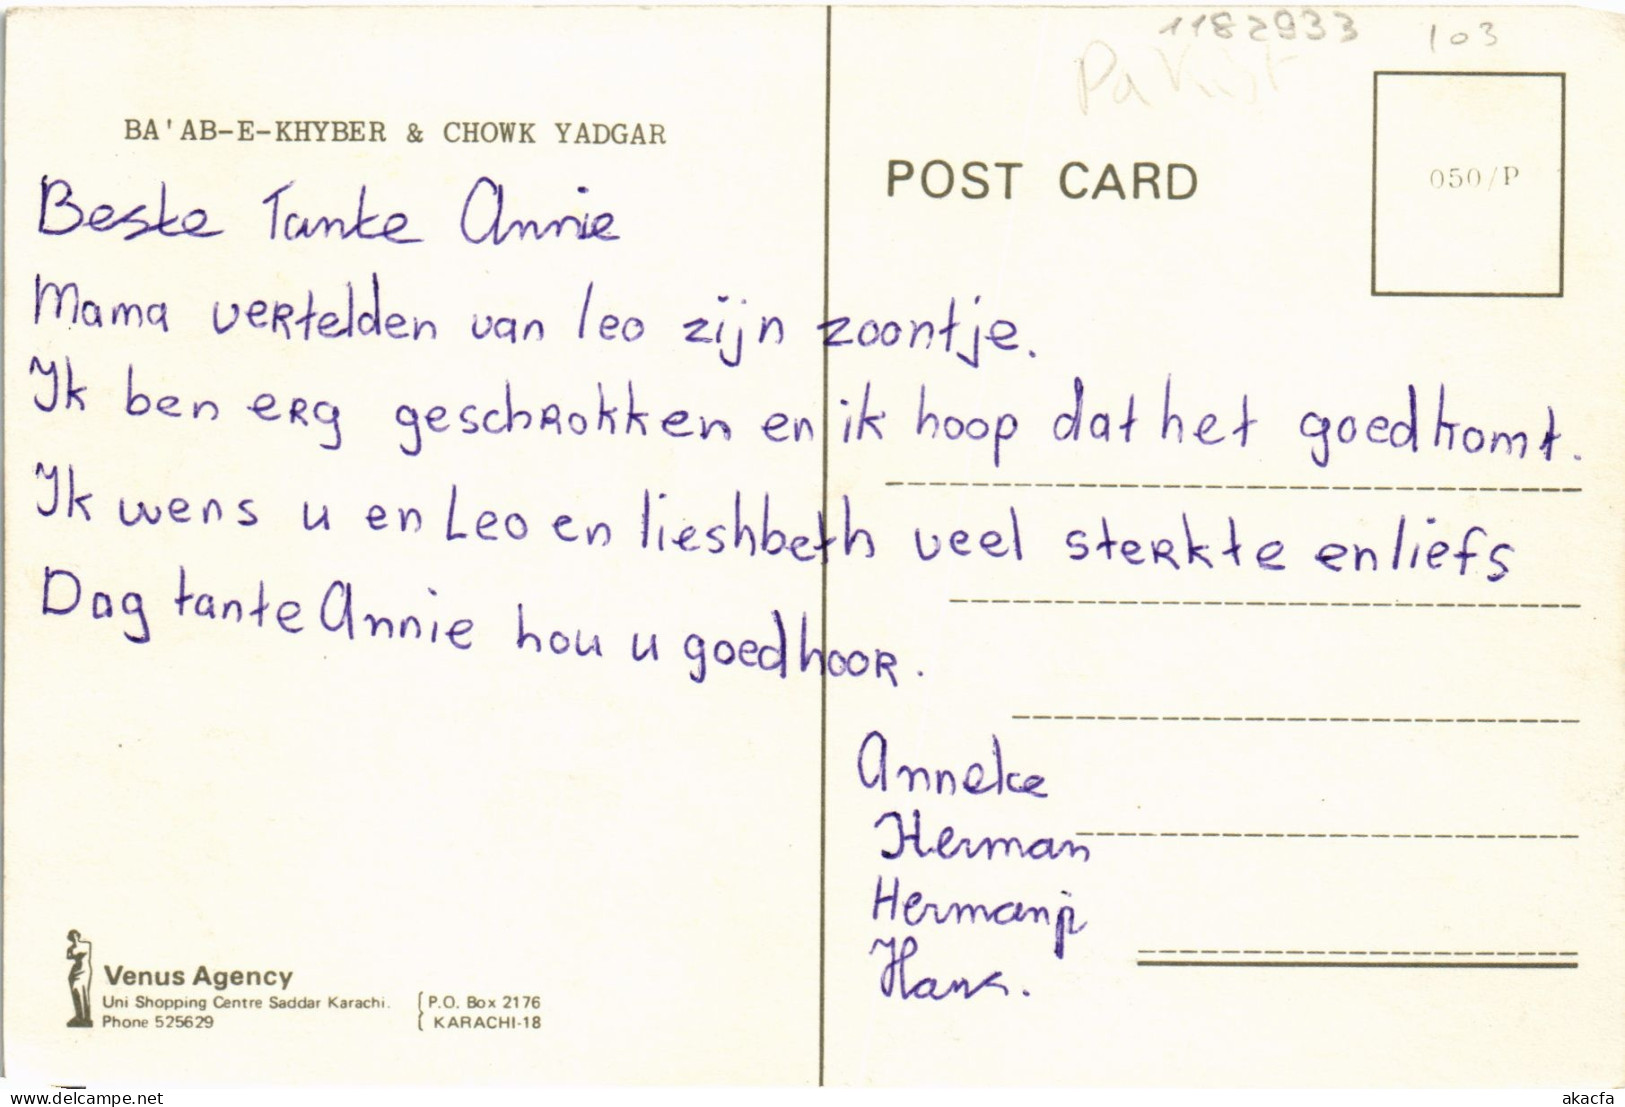 1182933 103
BA'AB-E-KHYBER & CHOWK YADGAR
POST CARD
050/P
Beste Tante Annie
Mama vertelden van leo zijn zoontje.
Ik ben erg geschrokken en ik hoop dat het goed komt.
Ik wens u en Leo en lieshbeth veel sterkte en liefs
Dag tante Annie hou u goed hoor.
Anneke
Herman
Hermanjr
Hans.
Venus Agency
Uni Shopping Centre Saddar Karachi. P.O. Box 2176
Phone 525629 KARACHI-18
delcampe.net
akacfa